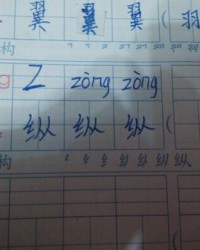 翼 翼 翼 ( 羽
构
g Z zòng zòng
纵 纵 纵 (
构 纵